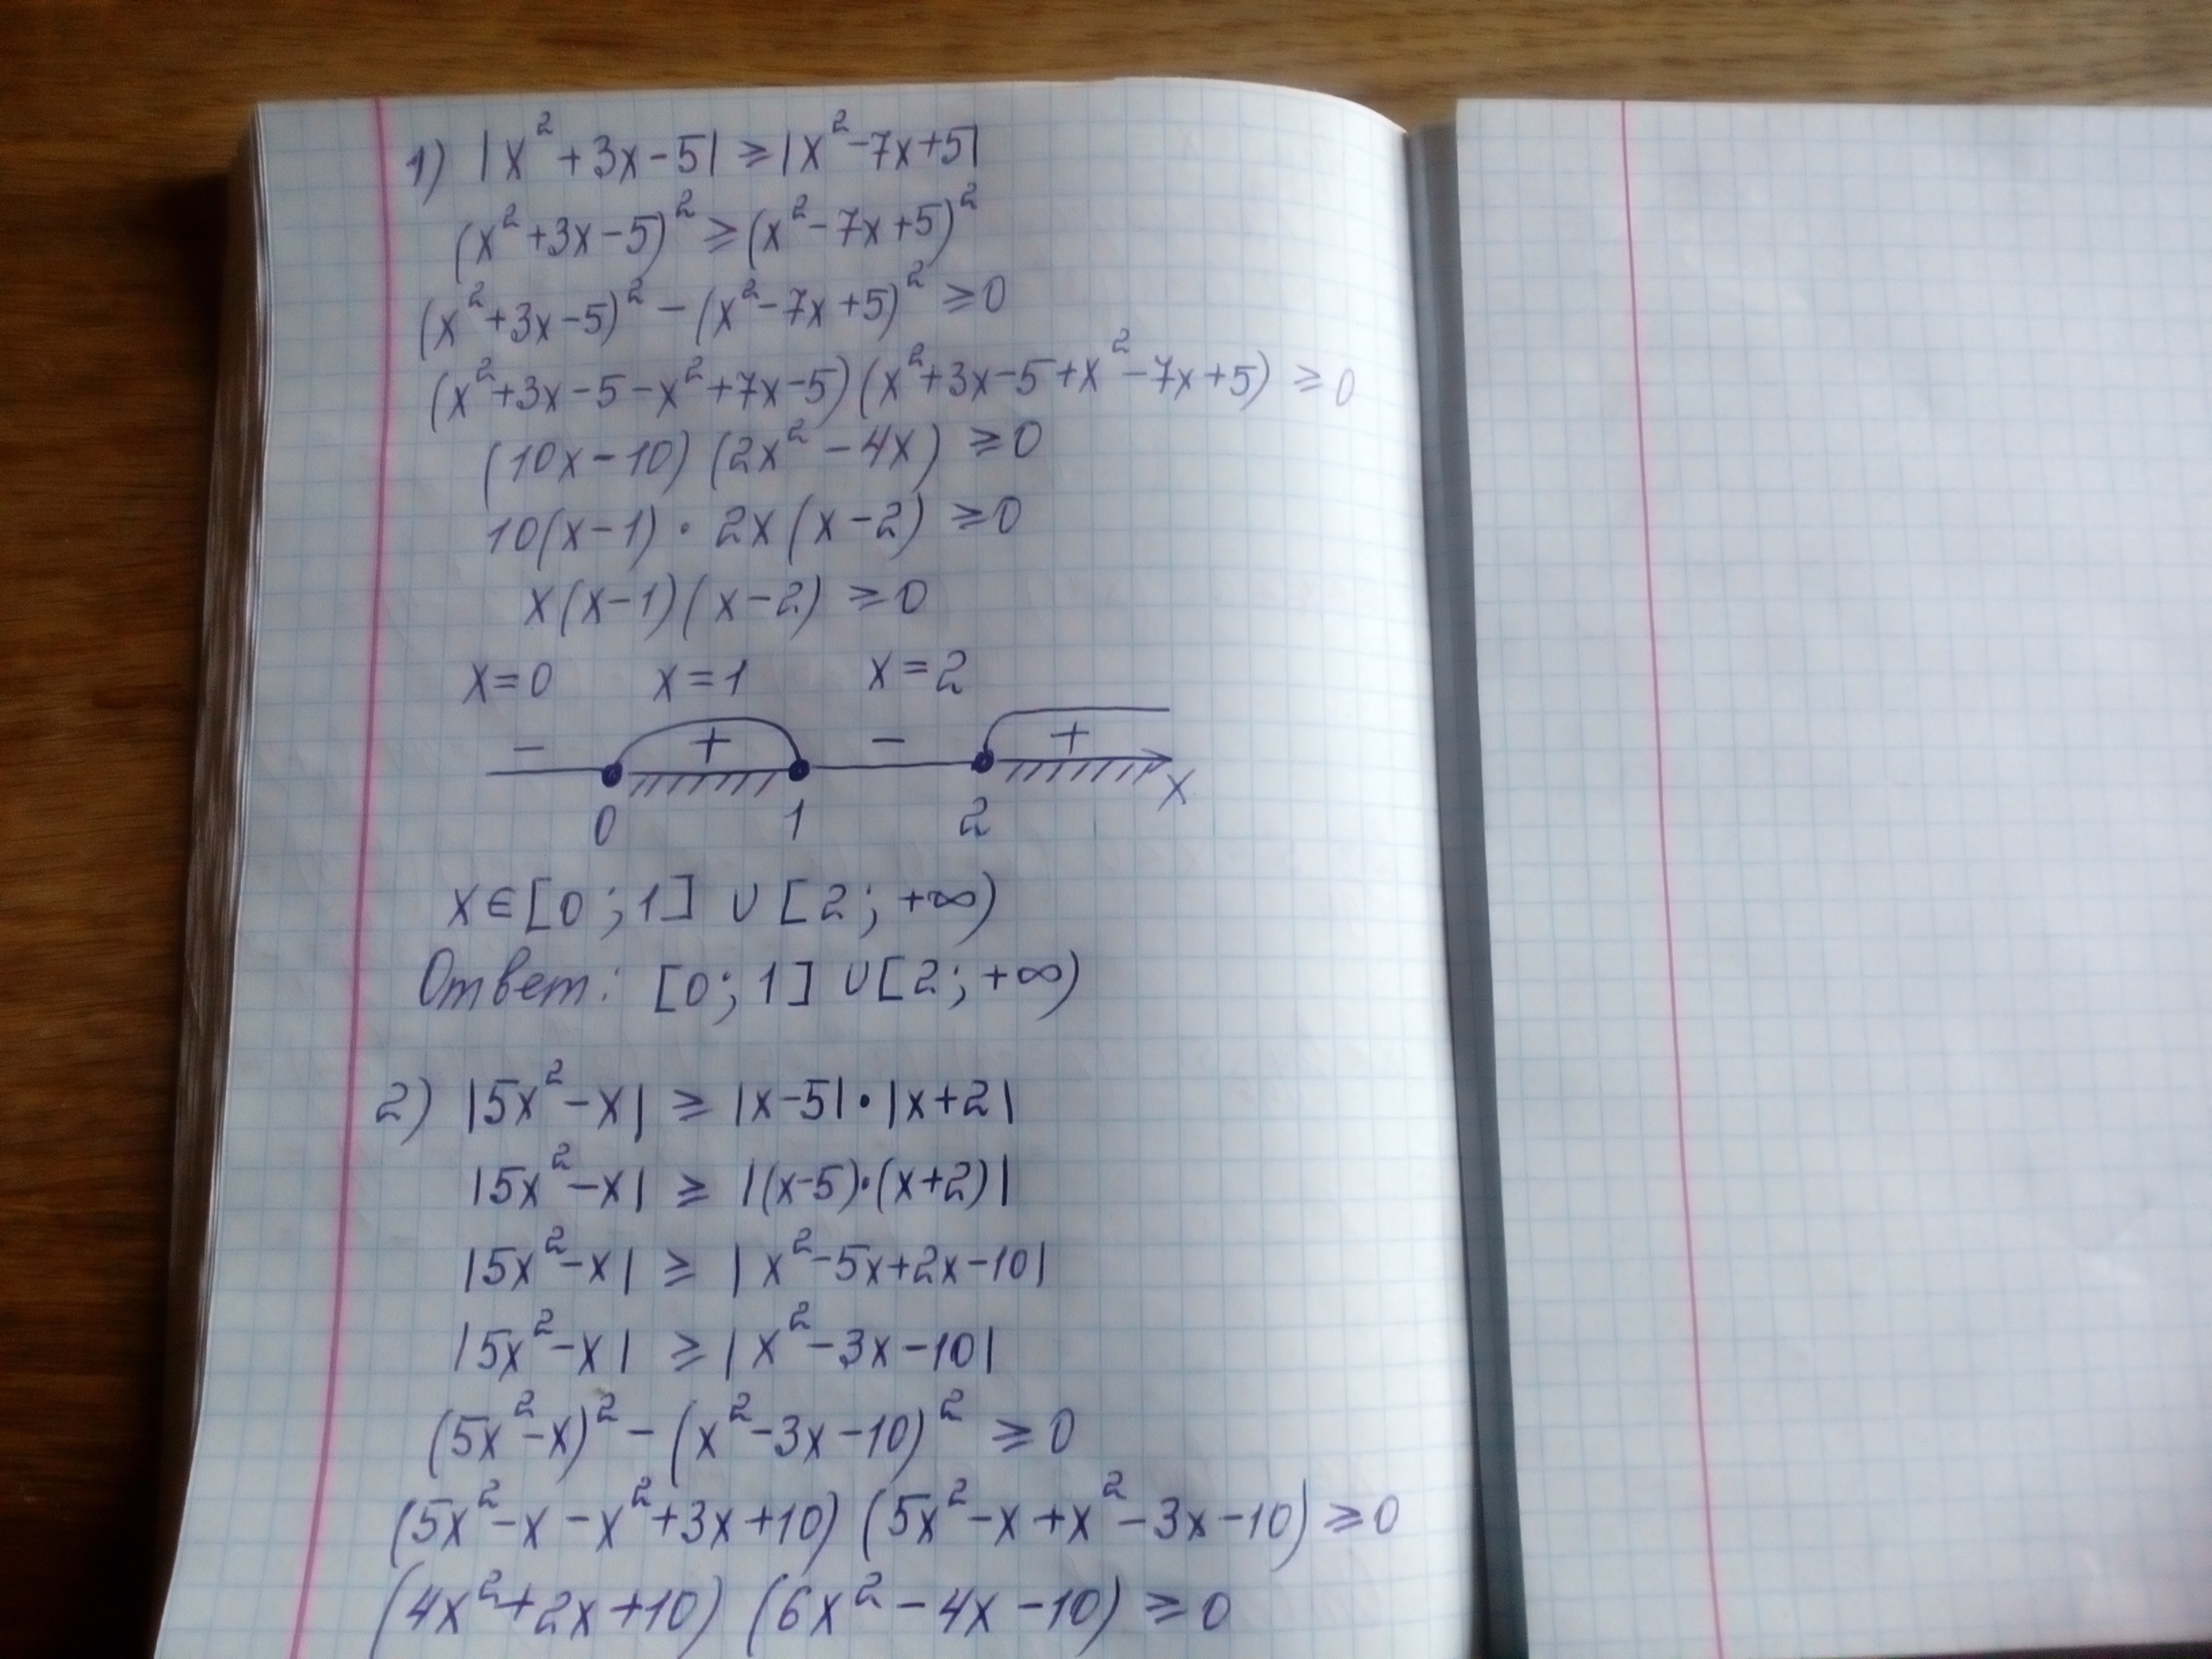 1) |x²+3x-5| ≥ |x²-7x+5|
(x²+3x-5)² ≥ (x²-7x+5)²
(x²+3x-5)² - (x²-7x+5)² ≥ 0
(x²+3x-5-x²+7x-5)(x²+3x-5+x²-7x+5) ≥ 0
(10x-10)(2x²-4x) ≥ 0
10(x-1)·2x(x-2) ≥ 0
x(x-1)(x-2) ≥ 0
x=0 x=1 x=2
- + - +
0 1 2 x
x∈[0;1]∪[2;+∞)
Ответ: [0;1]∪[2;+∞)
2) |5x²-x| ≥ |x-5|·|x+2|
|5x²-x| ≥ |(x-5)·(x+2)|
|5x²-x| ≥ |x²-5x+2x-10|
|5x²-x| ≥ |x²-3x-10|
(5x²-x)² - (x²-3x-10)² ≥ 0
(5x²-x-x²+3x+10)(5x²-x+x²-3x-10) ≥ 0
(4x²+2x+10)(6x²-4x-10) ≥ 0